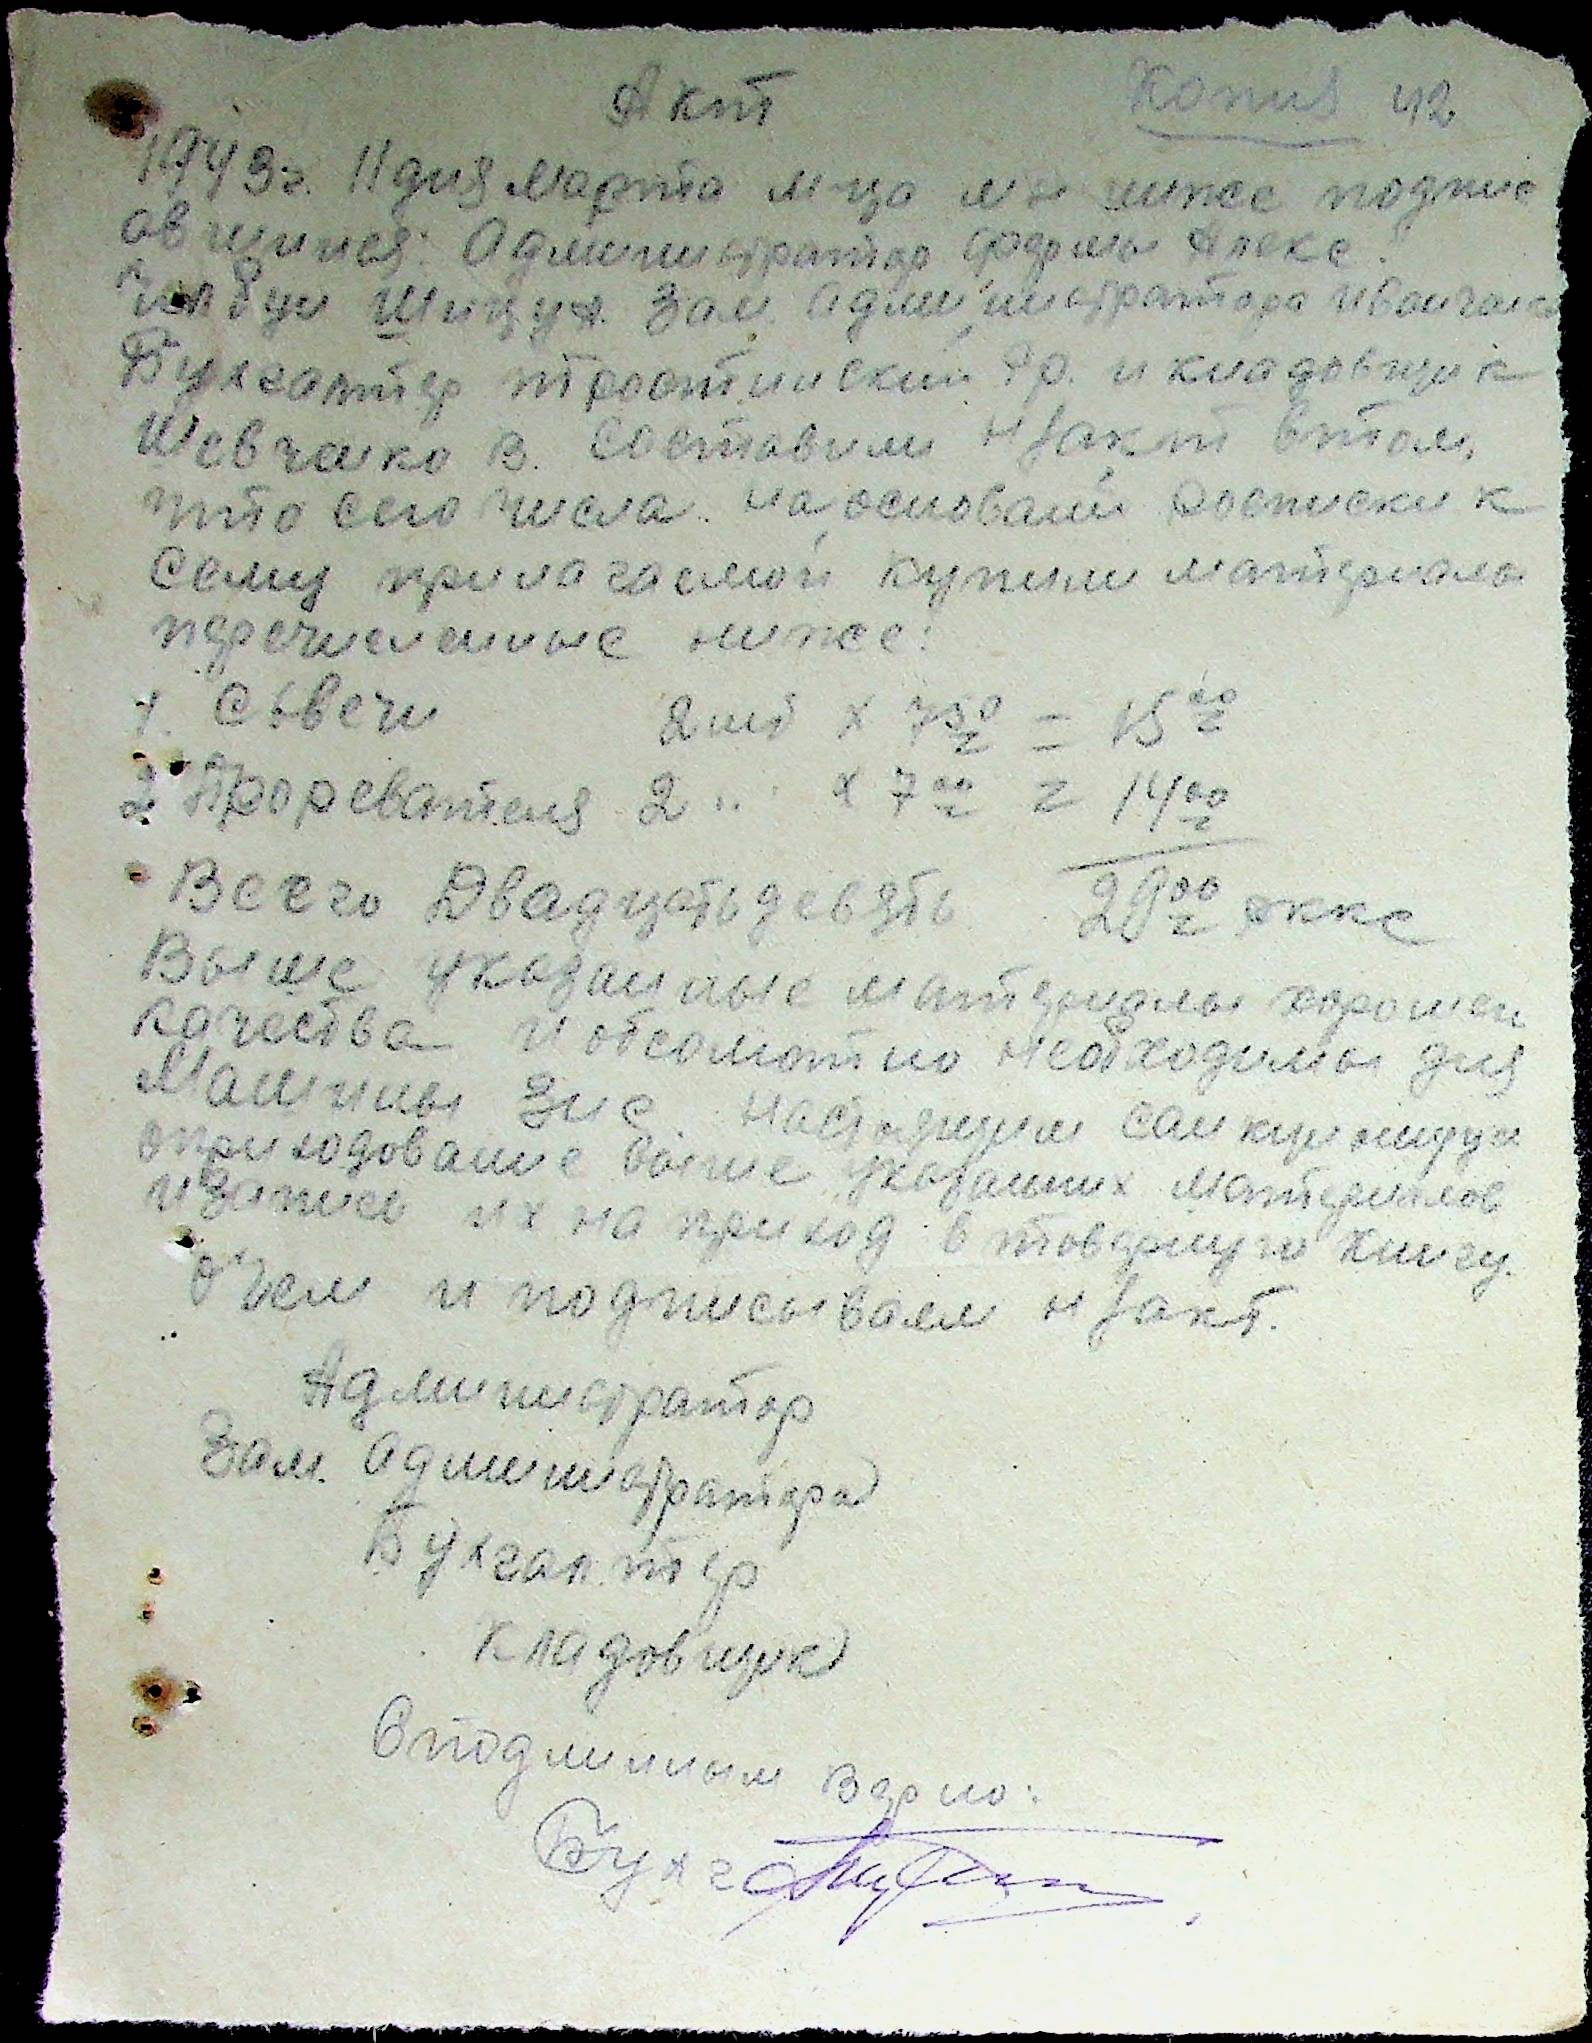 Акт Копия 42
1943 г. 11 дня Марта м-ца мы ниже подпис
авшиися: Администратор фермы Алекс.
Шицул. Зам. администратора Иванченко
Бухгалтер Тростинский Гр. и кладовщик
Шевченко В. составили н/акт в том,
что сего числа на основании росписки к
сему прилагаемой купили материалы
перечисленные ниже:
1. Съвечи 2 шт х 7 50 = 15 00
2. Прореватеня 2 " х 7 00 = 14 00
Всего Двадцать девять 29 00 рккс
Выше указанные материалы хорошей
качества и обсолютно необходимы для
Машины Зис. Настоящим санкционируем
оприходование выше указанных материалов
и запись их на приход в товарную книгу.
О чем и подписываем н/акт.
Администратор
Зам. администратора
Бухгалтер
Кладовщик
С подлинным верно:
Бухг